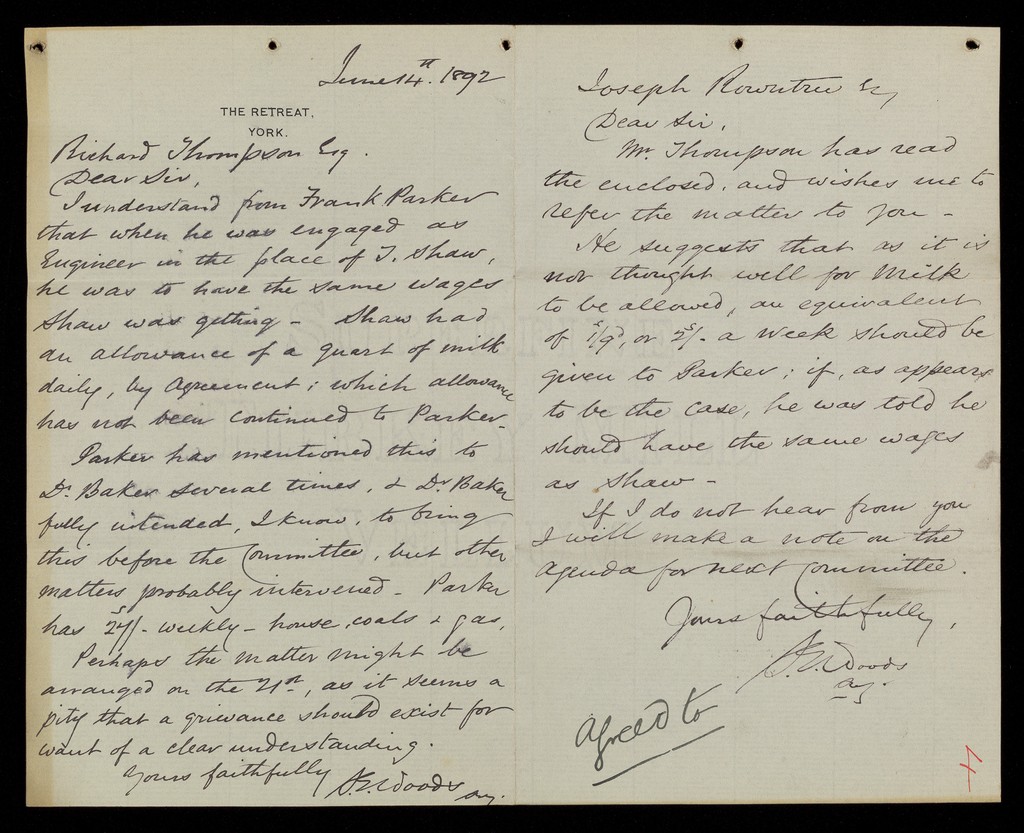 June 14th. 1892
THE RETREAT,
YORK.
Richard Thompson Esq.
Dear Sir,
I understand from Frank Parker
that when he was engaged as
Engineer in the place of T. Shaw,
he was to have the same wages
Shaw was getting - Shaw had
an allowance of a quart of milk
daily, by Agreement; which allowance
has not been continued to Parker.
Parker has mentioned this to
Dr. Baker several times, & Dr Baker
fully intended, I know, to bring
this before the Committee, but other
matters probably intervened - Parker
has 24s/- weekly - house, coals & gas,
Perhaps the matter might be
arranged on the 21st, as it seems a
pity that a grievance should exist for
want of a clear understanding.
Yours faithfully Woods
Joseph Rowntree Esq
Dear Sir,
Mr. Thompson has read
the enclosed, and wishes me to
refer the matter to you -
He suggests that as it is
not thought well for Milk
to be allowed, an equivalent
of 1s/9d, or 2s/- a week should be
given to Parker; if, as appears
to be the case, he was told he
should have the same wages
as Shaw -
If I do not hear from you
I will make a note on the
Agenda for next Committee.
Yours faithfully,
Woods
agreed to